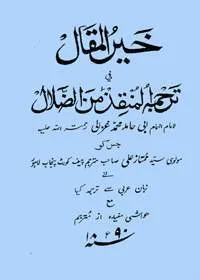 خیر المقال
فی
ترجمہ المنقذ من الضلال
للامام الہمام ابی حامد محمد غزالی رحمتہ اللہ علیہ
جس کو
مولوی سید ممتاز علی صاحب مترجم چیف کورٹ پنجاب لاہور
نے
زبان عربی سے ترجمہ کیا
مع
حواشی مفیدہ از مترجم
۱۸۹۰